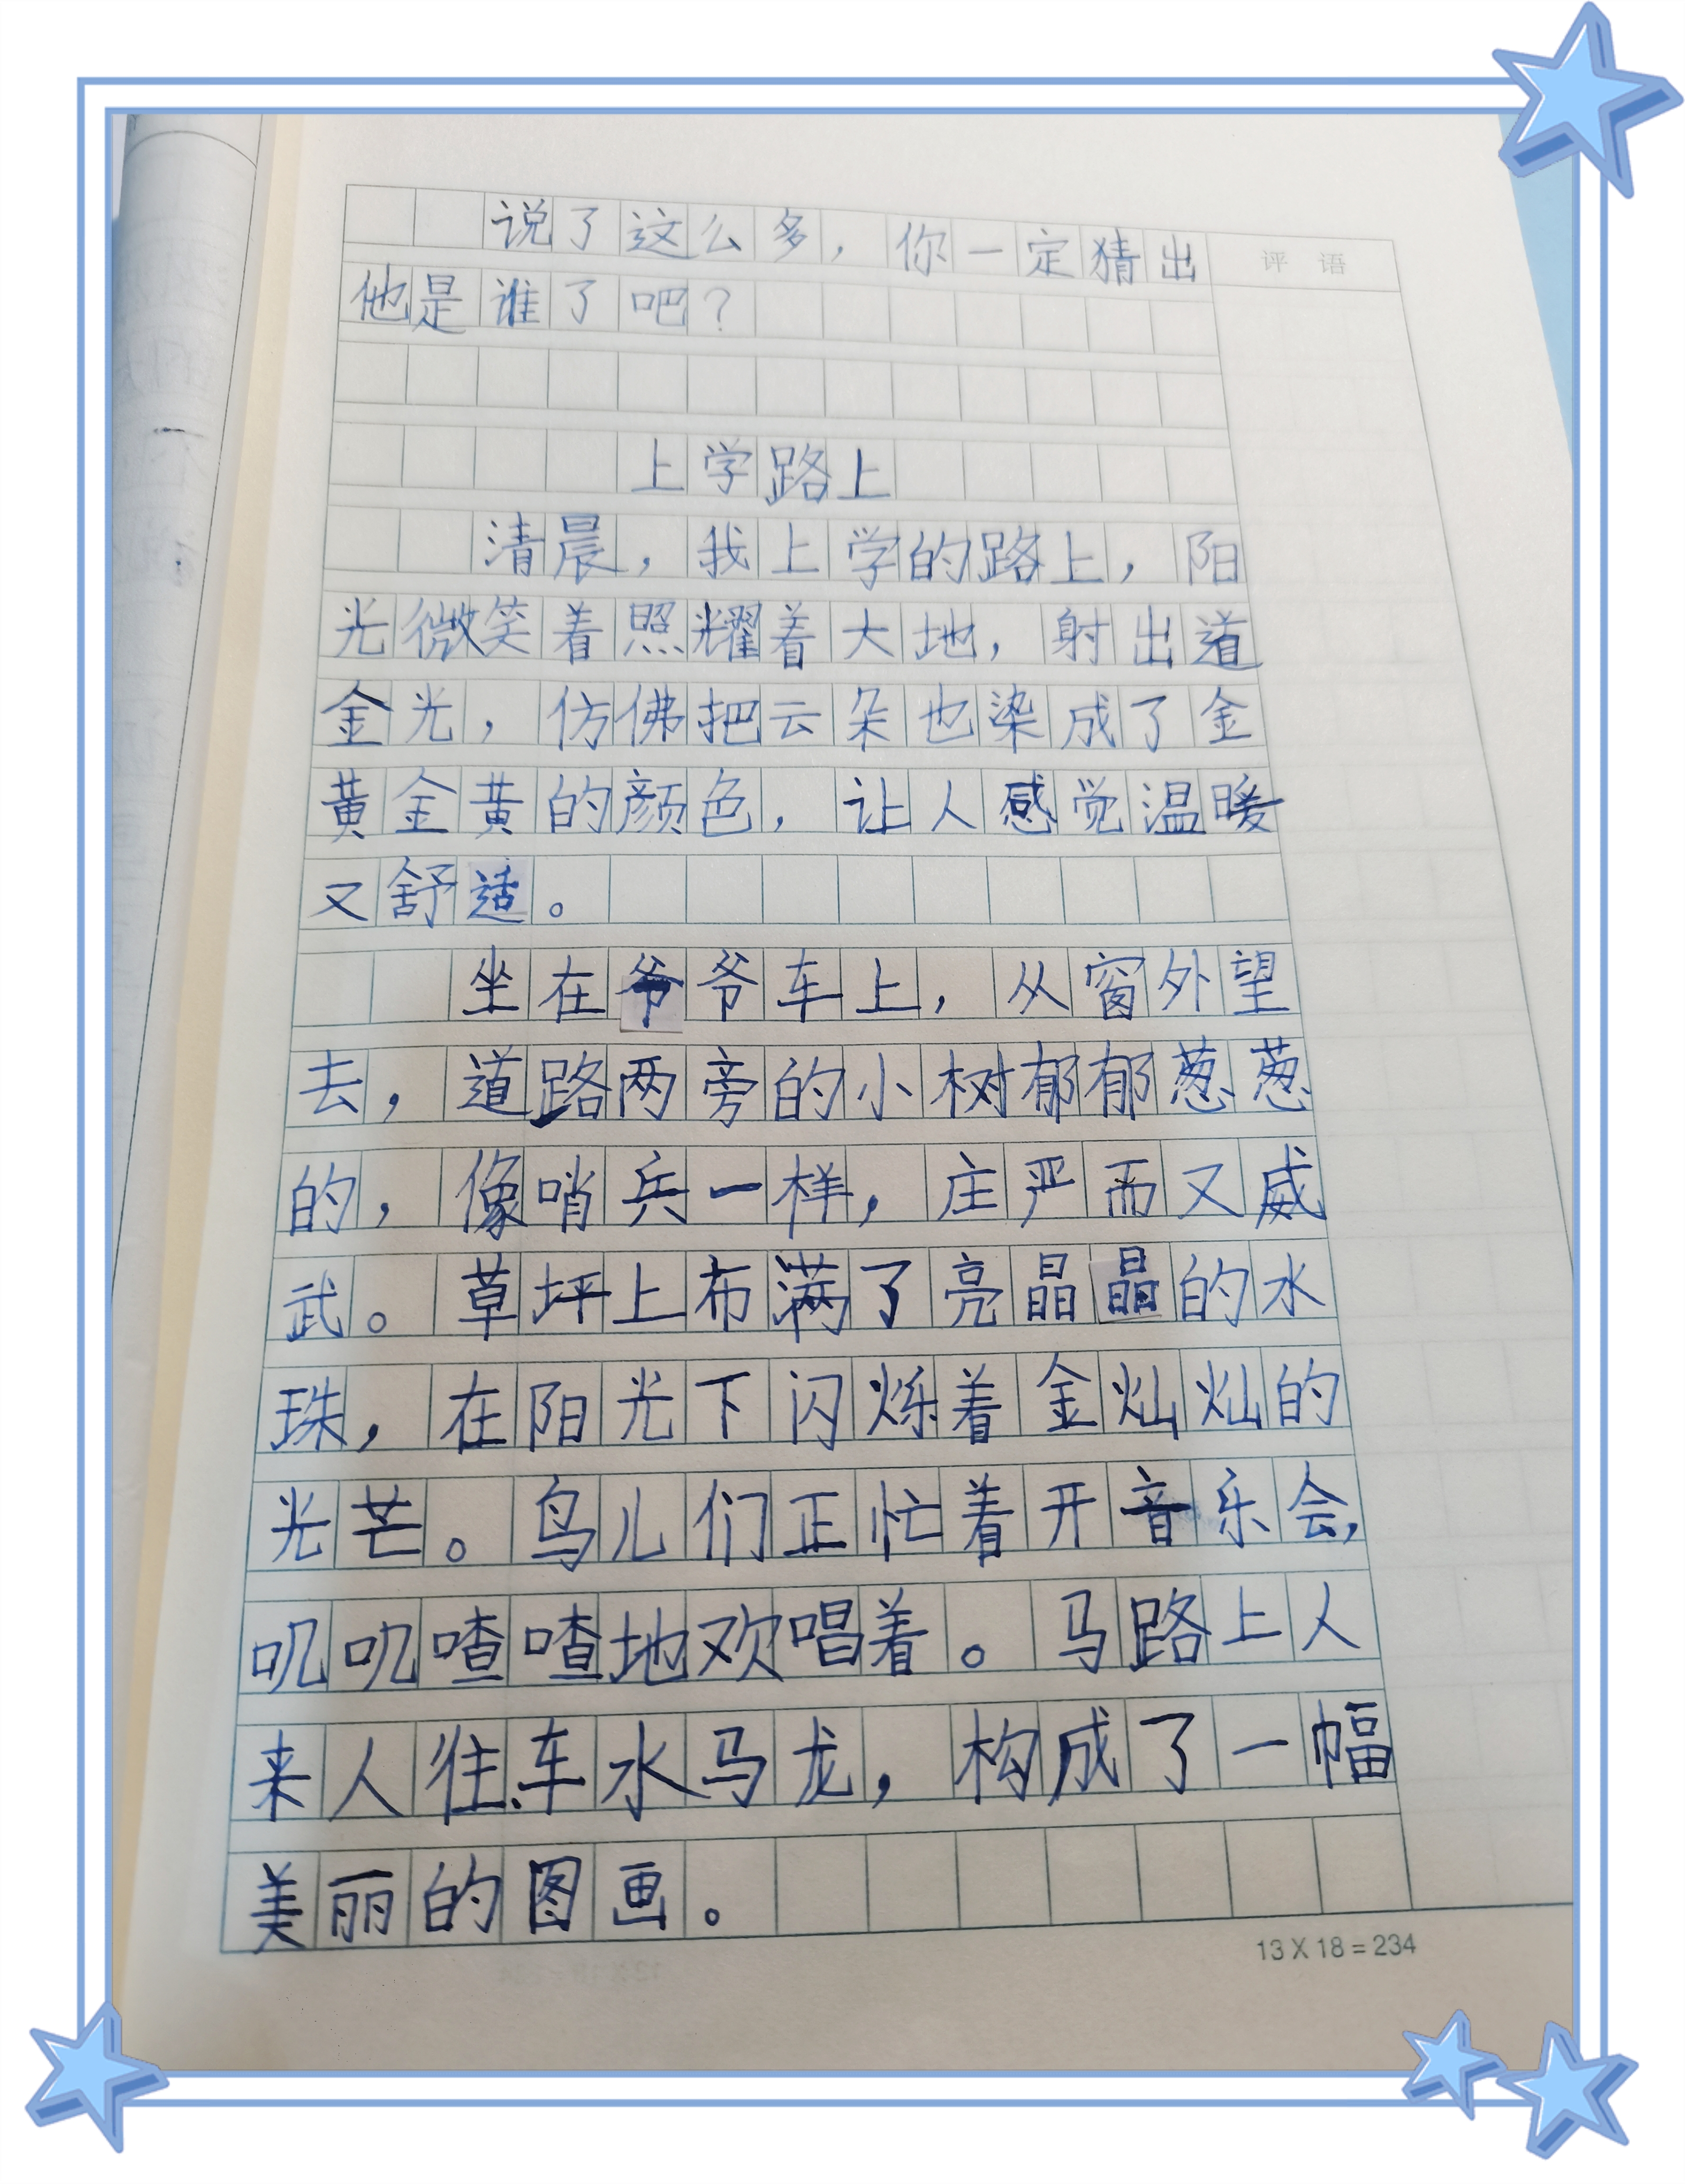 说了这么多，你一定猜出
评 语
他是谁了吧？
上学路上
清晨，我上学的路上，阳
光微笑着照耀着大地，射出道
金光，仿佛把云朵也染成了金
黄金黄的颜色，让人感觉温暖
又舒适。
坐在爷爷车上，从窗外望
去，道路两旁的小树郁郁葱葱
的，像哨兵一样，庄严而又威
武。草坪上布满了亮晶晶的水
珠，在阳光下闪烁着金灿灿的
光芒。鸟儿们正忙着开音乐会，
叽叽喳喳地欢唱着。马路上人
来人往、车水马龙，构成了一幅
美丽的图画。
13 X 18 = 234